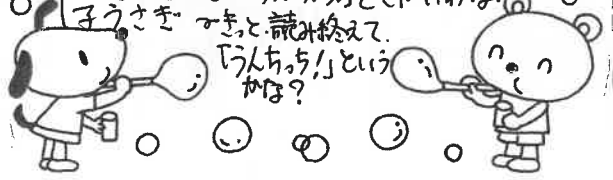 子うさぎ
〜きっと読み終えて、
「うんちっち!」という
かな?